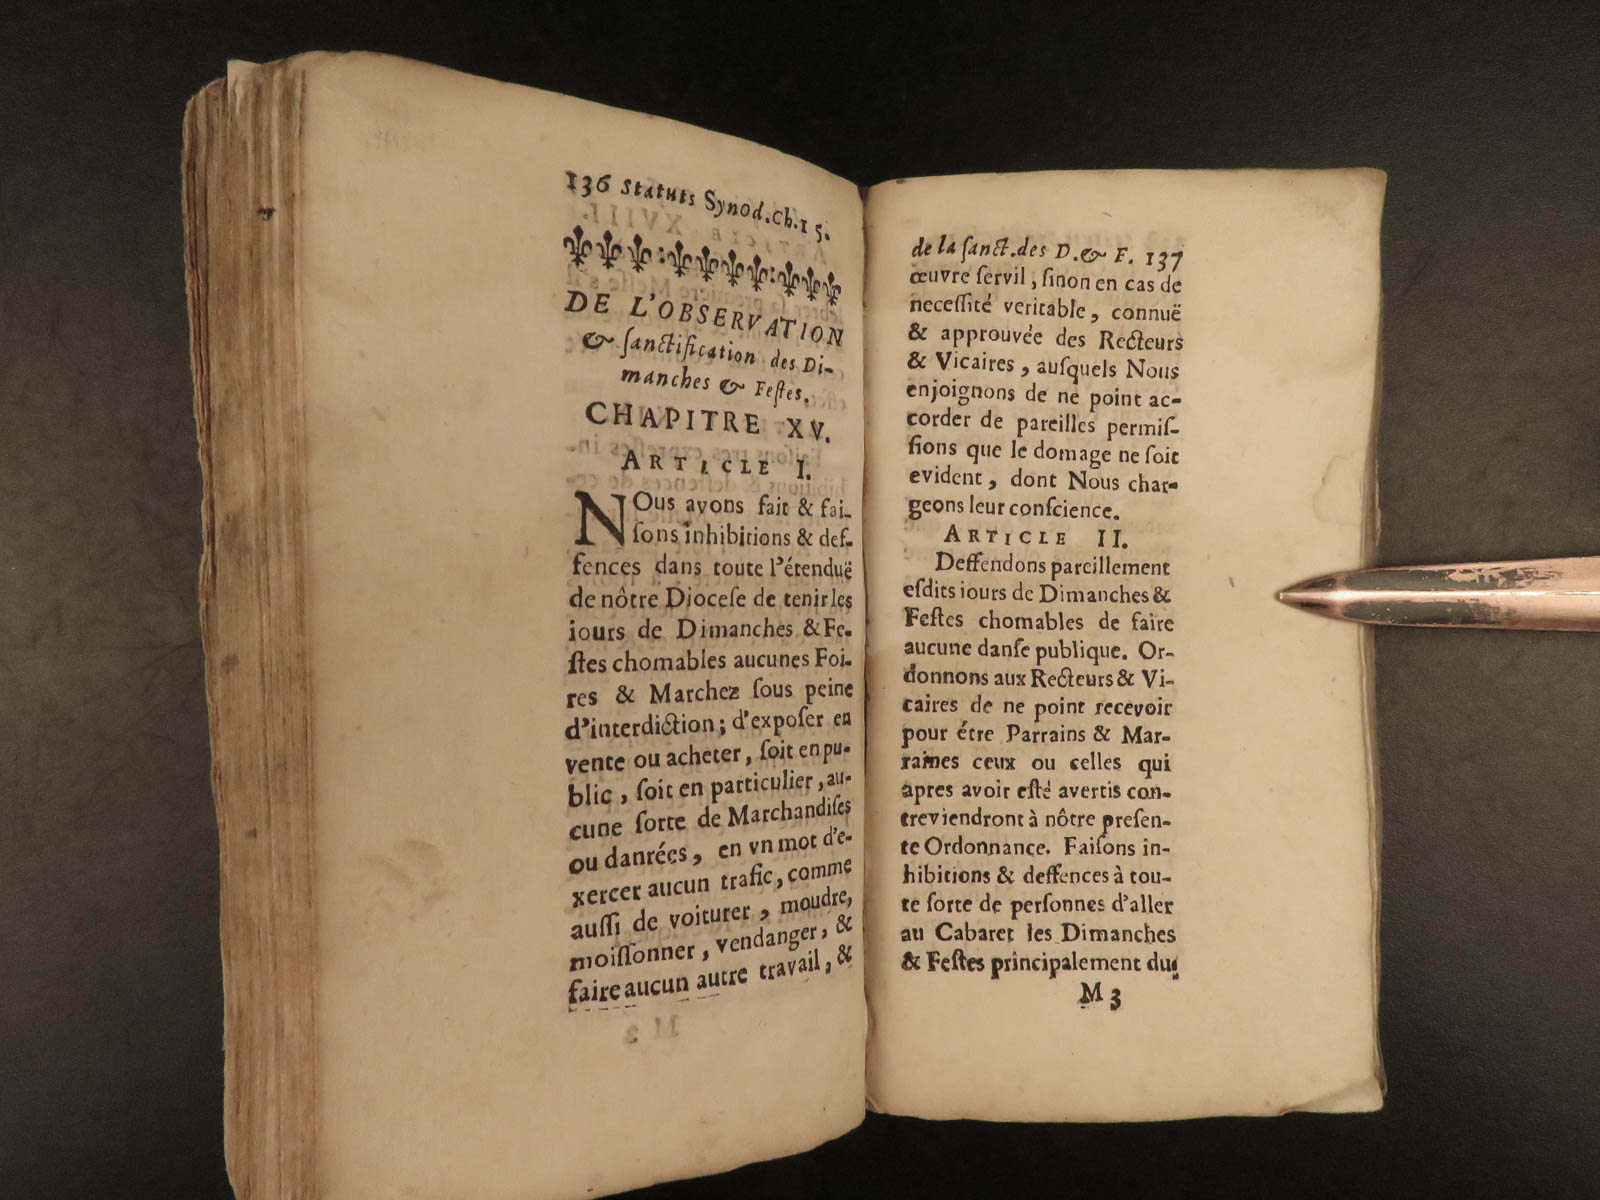 136 Statuts Synod. Ch. 15.
DE L'OBSERVATION
& ſanctification des Di-
manches & Feſtes.
CHAPITRE XV.
ARTICLE I.
NOus avons fait & fai-
ſons inhibitions & def-
fences dans toute l'étenduë
de nôtre Dioceſe de tenir les
iours de Dimanches & Fe-
ſtes chomables aucunes Foi-
res & Marchez ſous peine
d'interdiction; d'expoſer en
vente ou acheter, ſoit en pu-
blic, ſoit en particulier, au-
cune ſorte de Marchandiſes
ou danrées, en vn mot d'e-
xercer aucun trafic, comme
auſſi de voiturer, moudre,
moiſſonner, vendanger, &
faire aucun autre travail, &
de la ſanct. des D. & F. 137
œuvre ſervil, ſinon en cas de
neceſſité veritable, connuë
& approuvée des Recteurs
& Vicaires, auſquels Nous
enjoignons de ne point ac-
corder de pareilles permiſ-
ſions que le domage ne ſoit
evident, dont Nous char-
geons leur conſcience.
ARTICLE II.
Deffendons pareillement
eſdits iours de Dimanches &
Feſtes chomables de faire
aucune danſe publique. Or-
donnons aux Recteurs & Vi-
caires de ne point recevoir
pour étre Parrains & Mar-
raines ceux ou celles qui
apres avoir eſté avertis con-
treviendront à nôtre preſen-
te Ordonnance. Faiſons in-
hibitions & deffences à tou-
te ſorte de perſonnes d'aller
au Cabaret les Dimanches
& Feſtes principalement du-
M 3